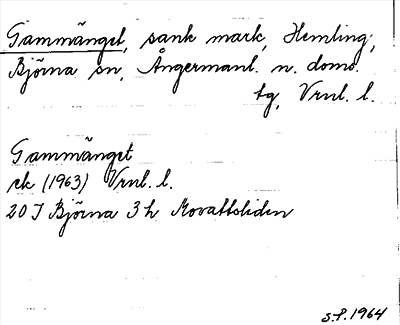 Gammänget, sank mark, Hemling,
Björna sn, Ångermanl. n. doms.
tg, Vrnl. l.
Gammänget
ek (1963) Vrnl. l.
20 I Björna 3 h Movattsliden
S.P. 1964